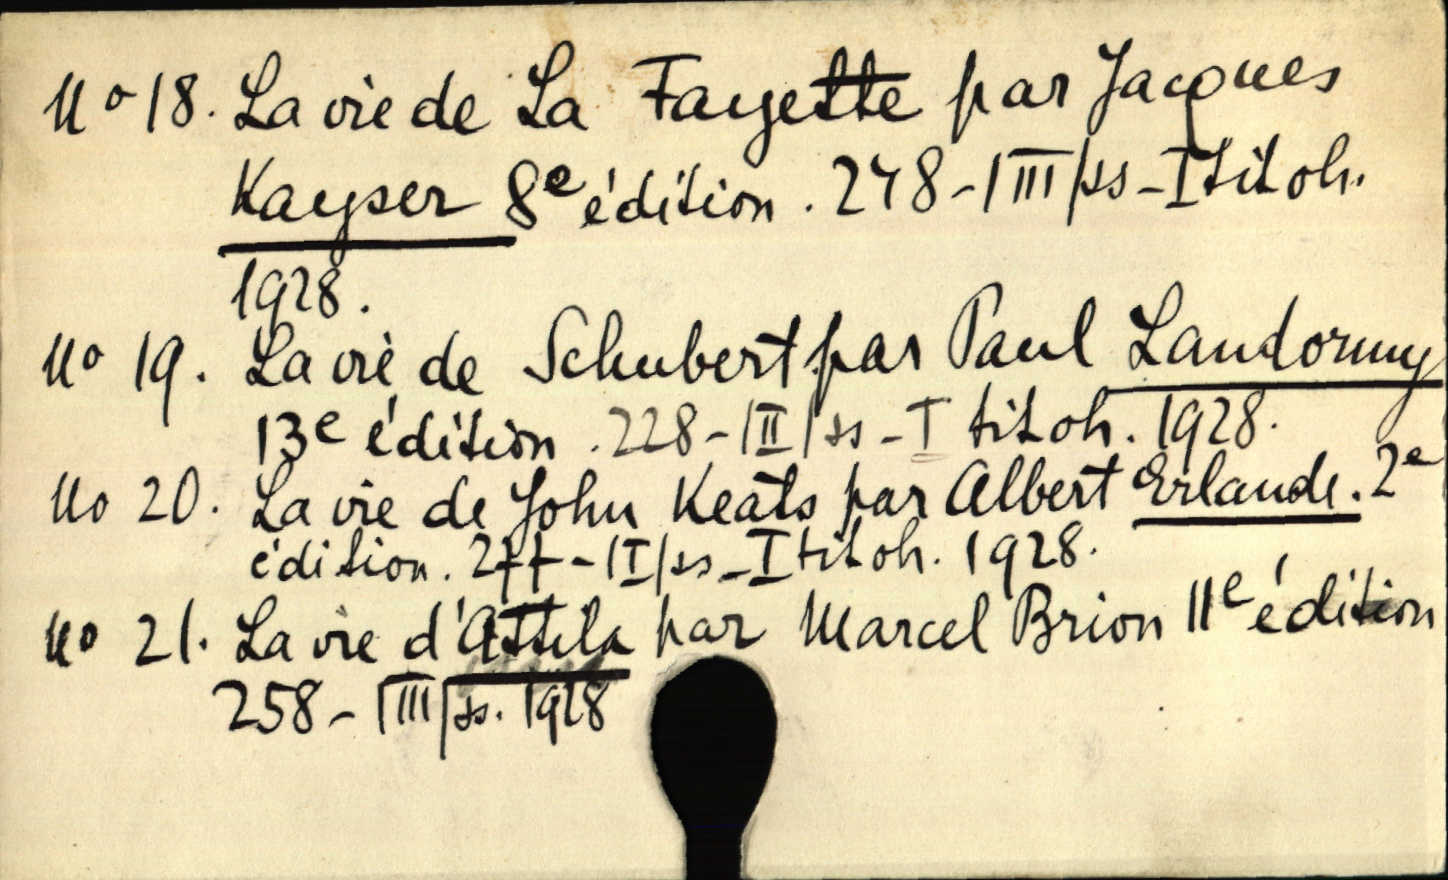 No 18. La vie de La Fayette par Jacques
Kayser 8e édition. 248-|III|ss-I tit oh.
1928.
No 19. La vie de Schubert par Paul Landormy
13e édition. 228-|II|ss-I tit oh. 1928.
No 20. La vie de John Keats par Albert Erlande. 2e
édition. 277-|I|ss-I tit oh. 1928.
No 21. La vie d'Attila par Marcel Brion 11e édition
258-|III|ss. 1928